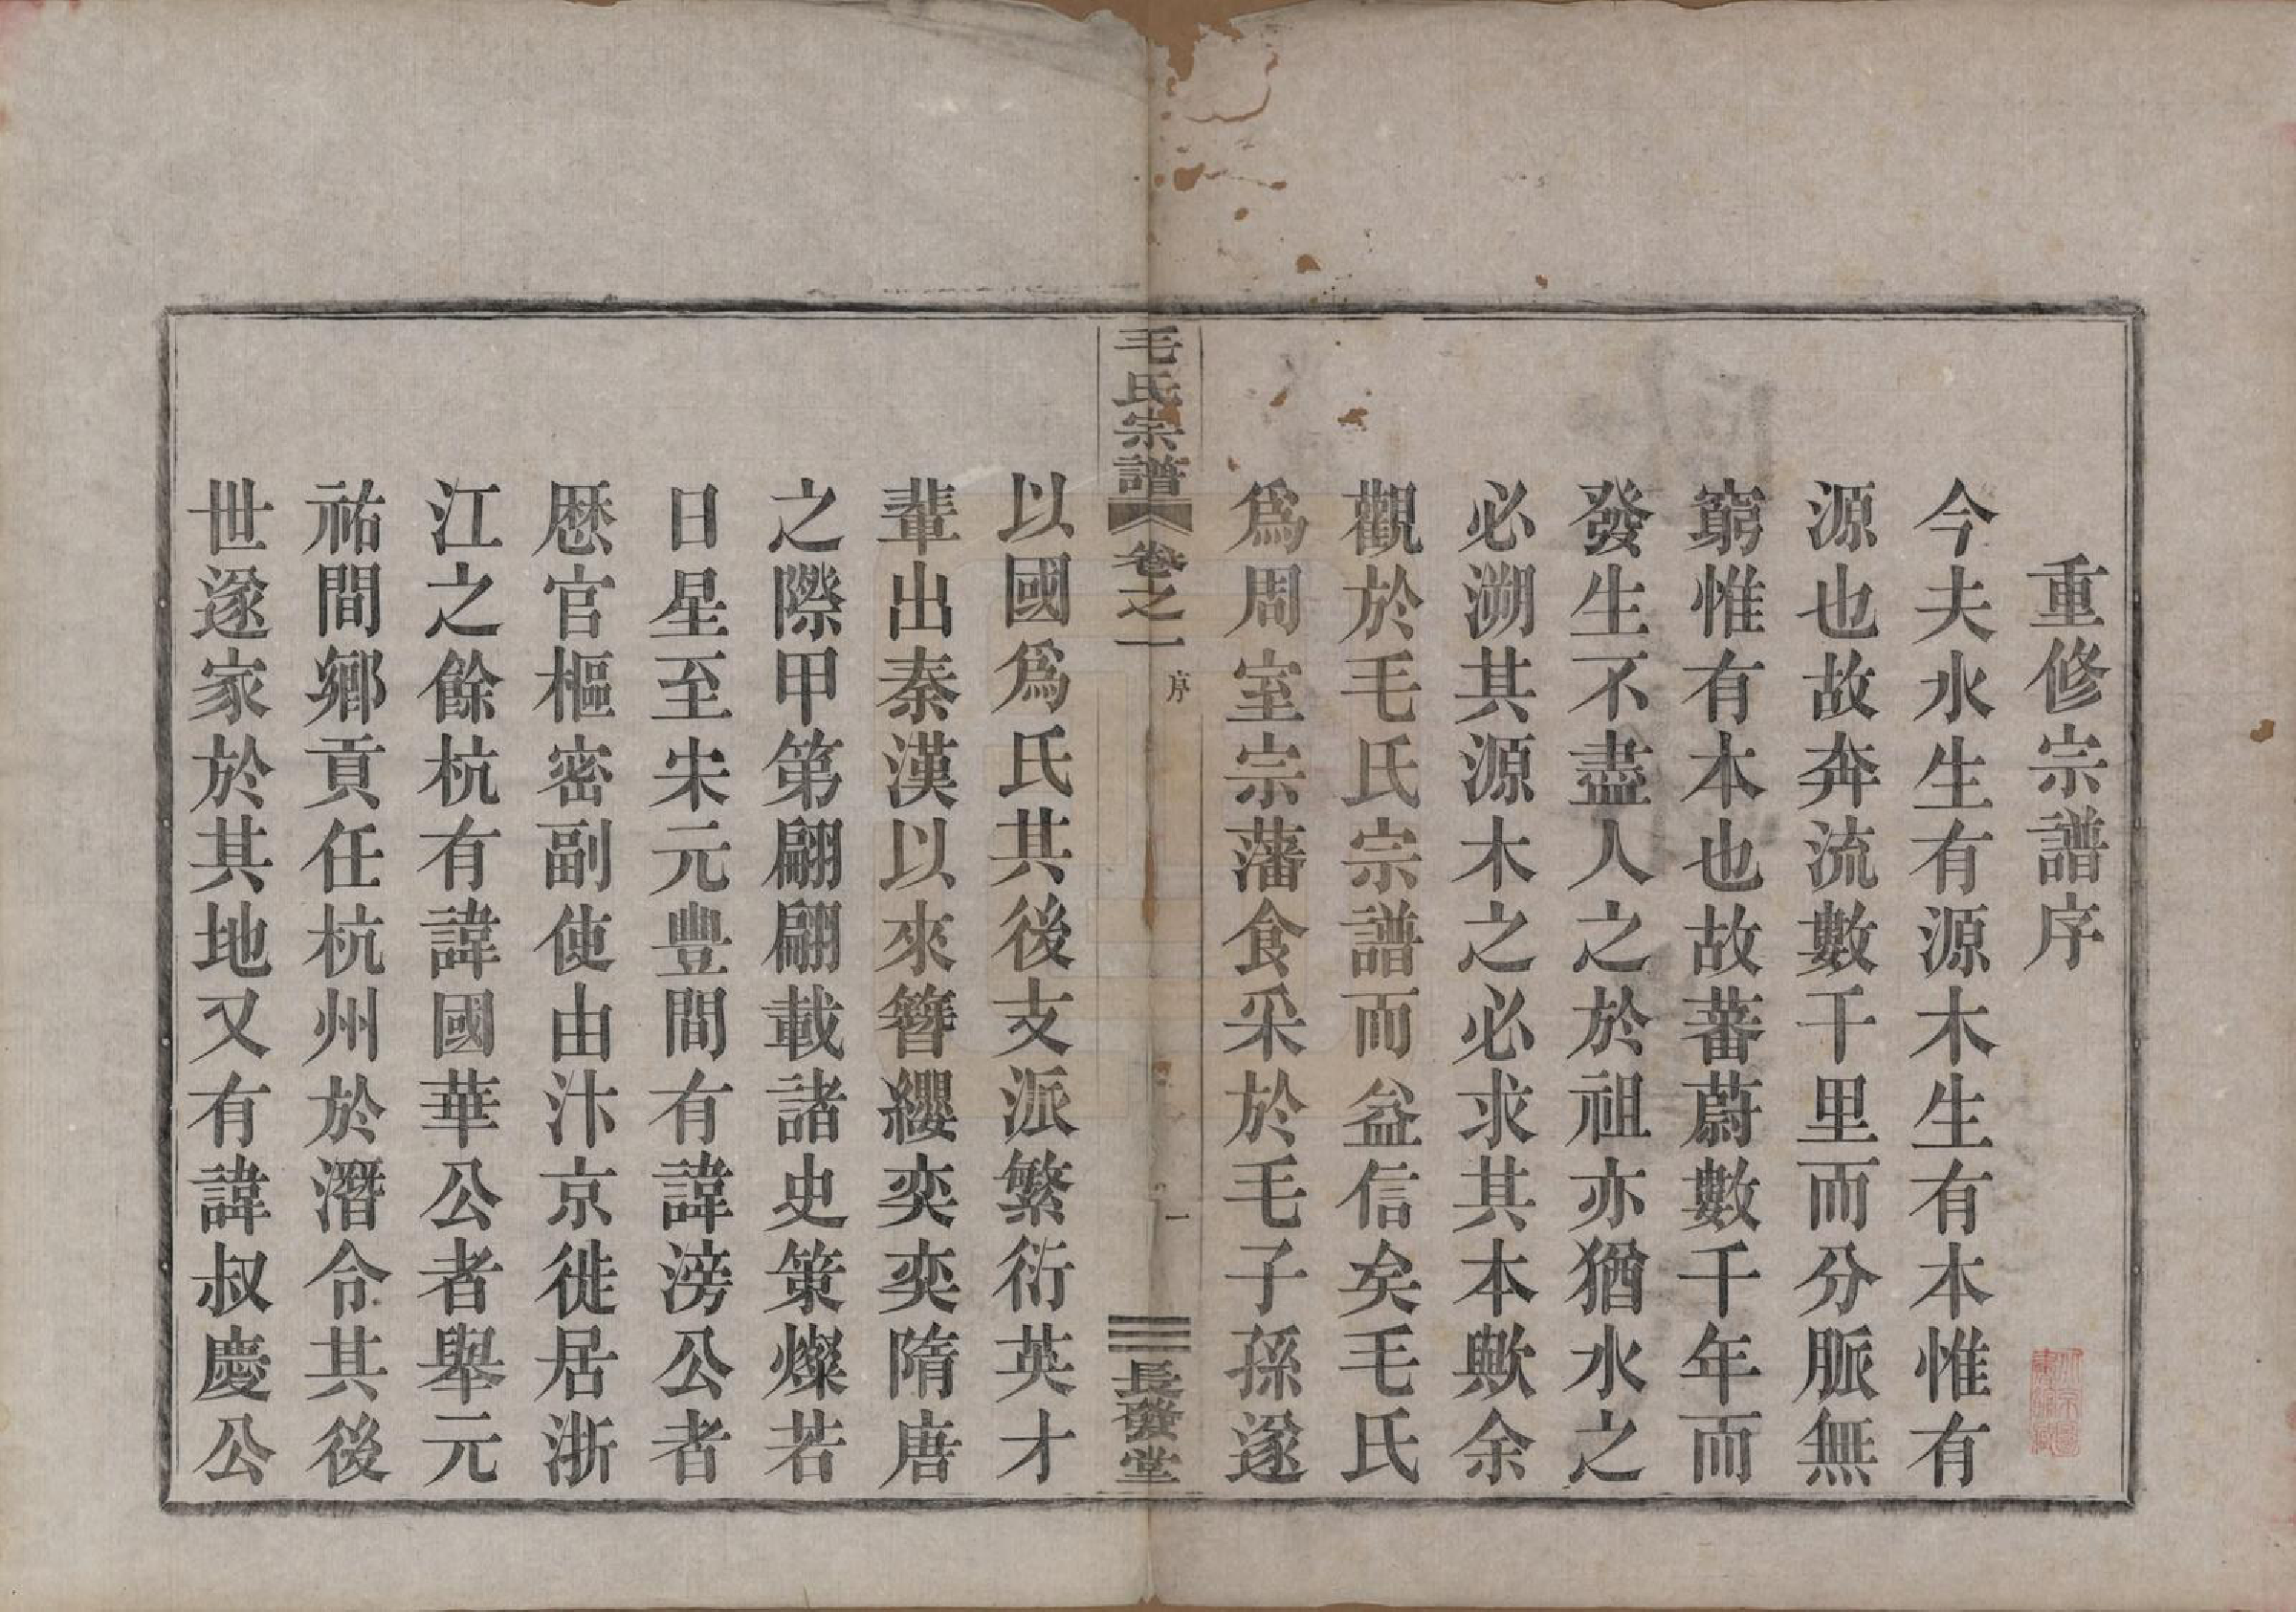 重修宗譜序
今夫水生有源木生有本惟有
源也故奔流數千里而分脈無
窮惟有本也故蕃蔚數千年而
發生不盡人之於祖亦猶水之
必溯其源木之必求其本歟余
觀於毛氏宗譜而益信矣毛氏
爲周室宗藩食采於毛子孫遂
毛氏宗譜 卷之一 序 一 長發堂
以國爲氏其後支派繁衍英才
輩出秦漢以來簪纓奕奕隋唐
之際甲第翩翩載諸史策燦若
日星至宋元豐間有諱滂公者
歷官樞密副使由汴京徙居浙
江之餘杭有諱國華公者舉元
祐間鄉貢任杭州於潛令其後
世遂家於其地又有諱叔慶公